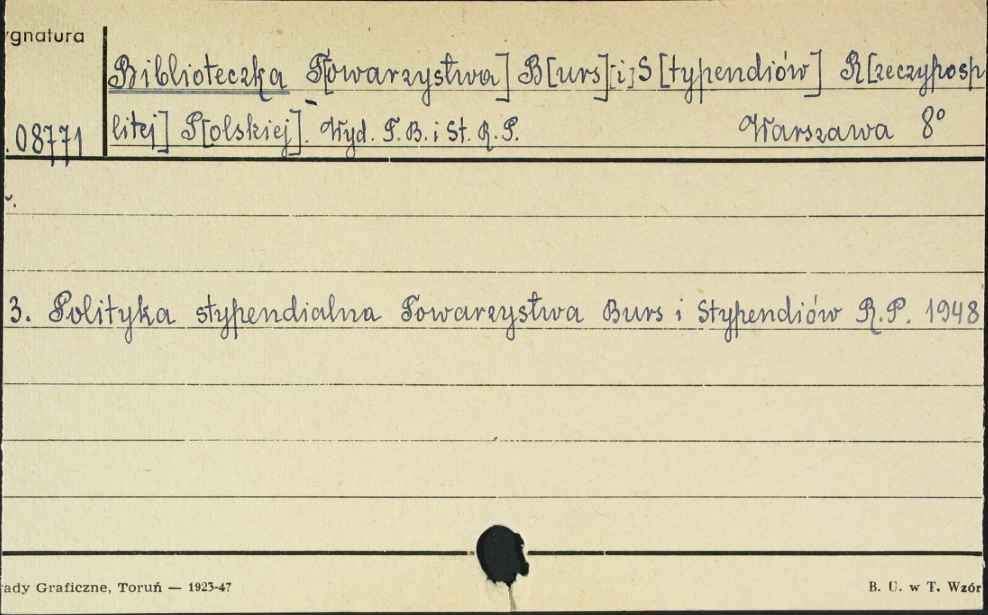 ygnatura
Biblioteczka T[owarzystwa] B[urs] [i] S[typendiów] R[zeczyposp
litej] P[olskiej]. Wyd. T.B. i St. R.P. Warszawa 8°
.08771
3. Polityka stypendialna Towarzystwa Burs i Stypendiów R.P. 1948
ady Graficzne, Toruń — 1923-47
B. U. w T. Wzór